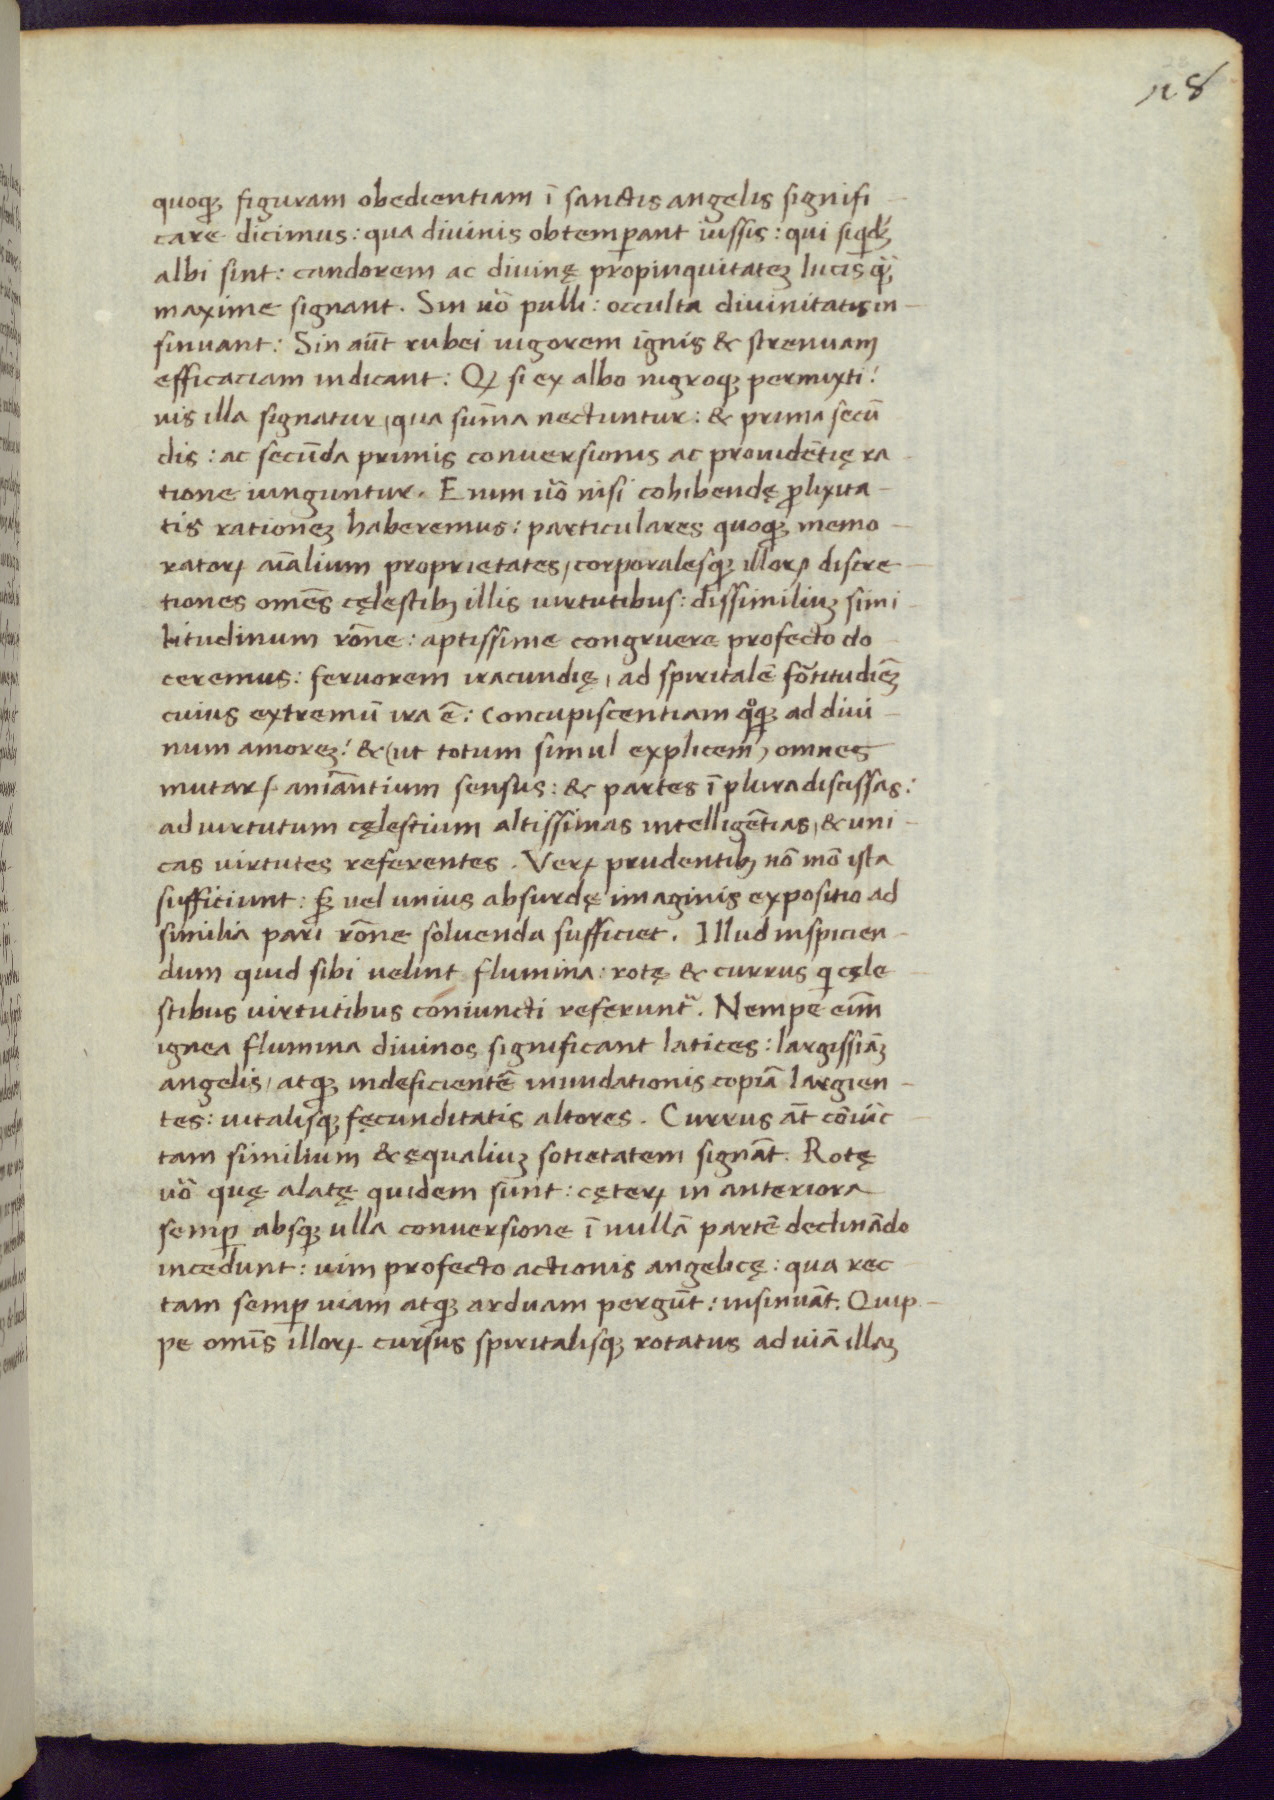 28
quoqꝫ figuram obedientiam ī sanctis angelis signifi-
care dicimus: qua divinis obtemꝑant iussis: qui siqdꝫ
albi sint: candorem ac divinę propinquitateꝫ lucis qꝫ
maxime signant. Sin uō pulli: occulta divinitatis in-
sinuant: Sin aūt rubei uigorem ignis & strenuam
efficaciam indicant: Qꝫ si ex albo nigroqꝫ permixti:
uis illa signatur, qua sūma nectuntur: & prima secū
dis: ac secūda primis conuersionis ac prouidētię ra-
tione iunguntur. Enim uō nisi cohibendę ꝓlixita-
tis rationeꝫ haberemus: particulares quoqꝫ memo-
ratoꝝ aīalium proprietates, corporalesqꝫ illoꝝ discre-
tiones omēs cęlestibꝫ illis uirtutibus: dissimiliuꝫ simi-
litudinum rōne: aptissime congruere profecto do-
ceremus: feruorem iracundię, ad spiritalē fortitudīeꝫ
cuius extremū ira ē: concupiscentiam qꝫ ad diui-
num amoreꝫ: & (ut totum simul explicem) omnes
mutaꝝ aniāntium sensus: & partes ī plura discissas:
ad uirtutum cęlestium altissimas intelligētias, & uni-
cas virtutes referentes. Veꝝ prudentibꝫ nō mō ista
sufficiunt: sꝫ uel unius absurdę imaginis expositio ad
similia pari rōne soluenda sufficiet. Illud inspicien-
dum quid sibi uelint flumina: rotę & currus q cęle-
stibus uirtutibus coniuncti referunt̃. Nempe eīm
ignea flumina divinos significant latices: largissiāꝫ
angelis, atqꝫ indeficientē inundationis copiā largien-
tes: uitalisqꝫ fęcunditatis altores. Currus aūt cōiūc-
tam similium & ęqualiuꝫ sotietatem signāt. Rotę
uō quę alatę quidem sunt: cęteꝝ in anteriora
semꝑ absqꝫ ulla conuersione ī nullā partē declinādo
incedunt: uim profecto actionis angelicę: qua rec-
tam semꝑ uiam atqꝫ arduam pergūt: insinuāt. Quip-
pe omīs illoꝝ cursus spiritalisqꝫ rotatus ad uiā illaꝫ